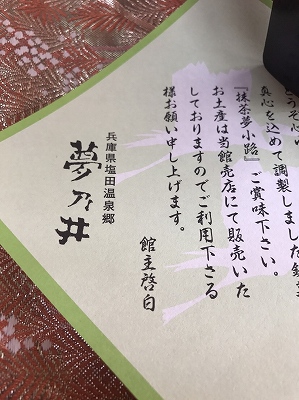 どうぞ心
真心を込めて調製しました銘
『抹茶夢小路』ご賞味下さい。
お土産は当館売店にて販売いた
しておりますのでご利用下さる
様お願い申し上げます。
館主啓白
兵庫県塩田温泉郷
夢乃井